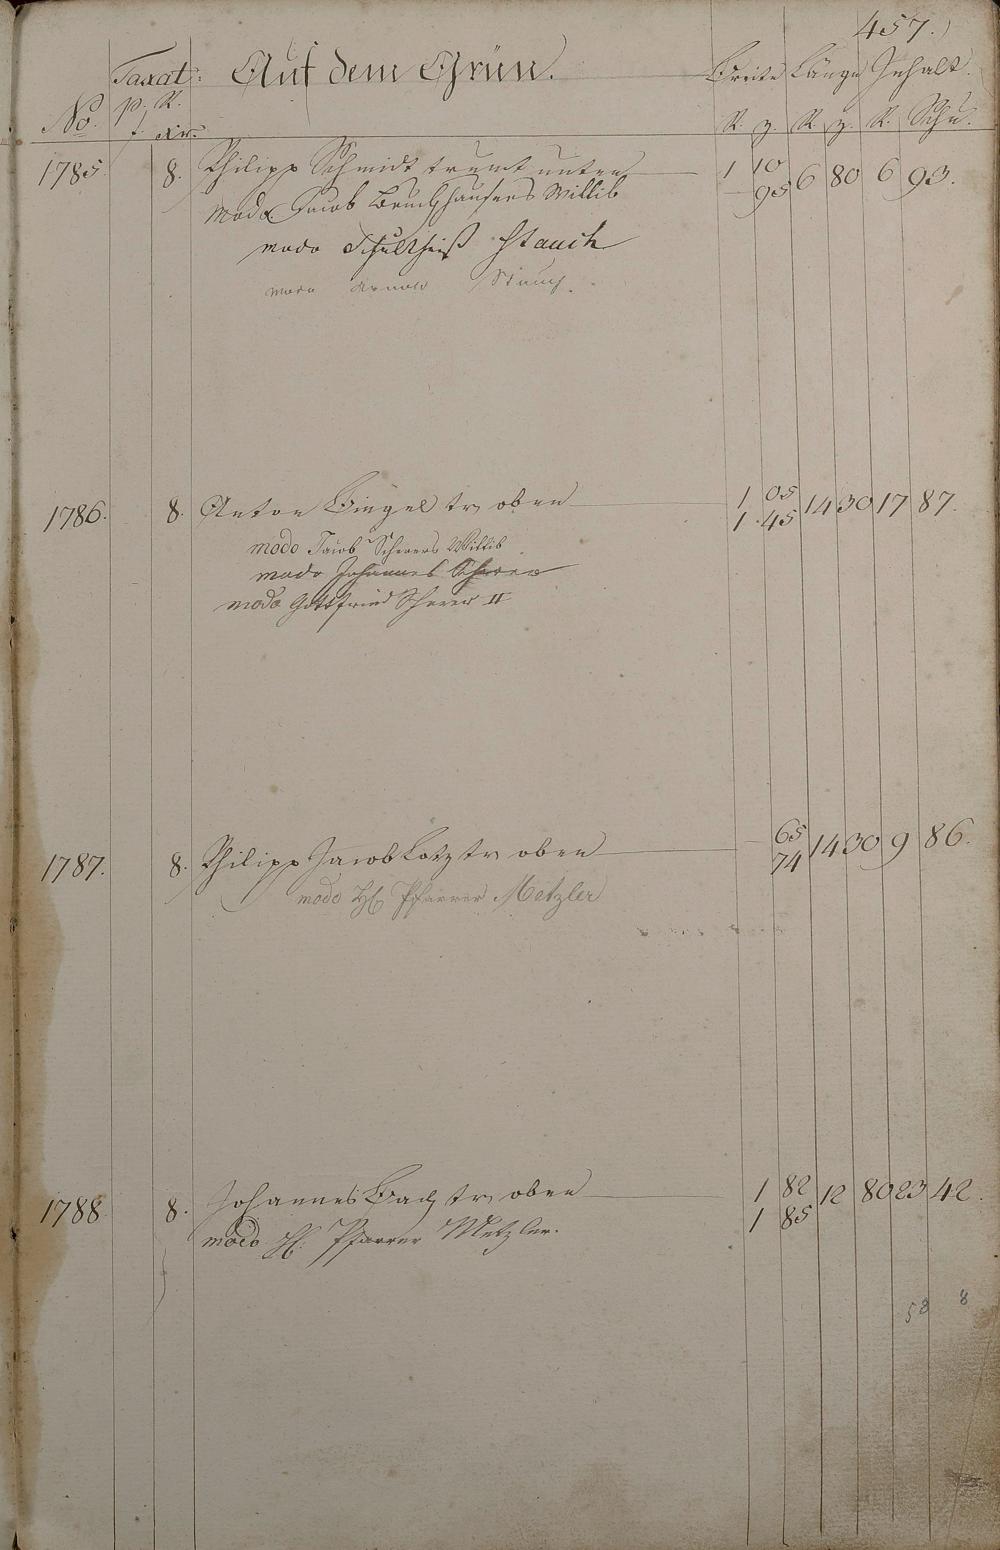 457.
Taxat: Auf dem Grün. Breite Länge Inhalt.
No. p. R. f. xr. R. z. R. z. R. Schu.
1785. 8. Philipp Schmidt trumt unten 1 10 6 80 6 93.
95
modo Jacob Bruchhausers Wittib
modo Schultheiß Stauch
modo Arnold Stauch.
1786. 8. Anton Bingel tr. oben 1 05 14 30 17 87.
1 45
modo Jacob Scherers Wittib
modo Johannes Scherer
modo Gottfried Scherer II
1787. 8. Philipp Jacob Lotz tr. oben 65 14 30 9 86.
74
modo H. Pfarrer Metzler
1788 8. Johannes Bach tr. oben 1 82 12 80 23 42.
1 85
modo H. Pfarrer Metzler.
58 8